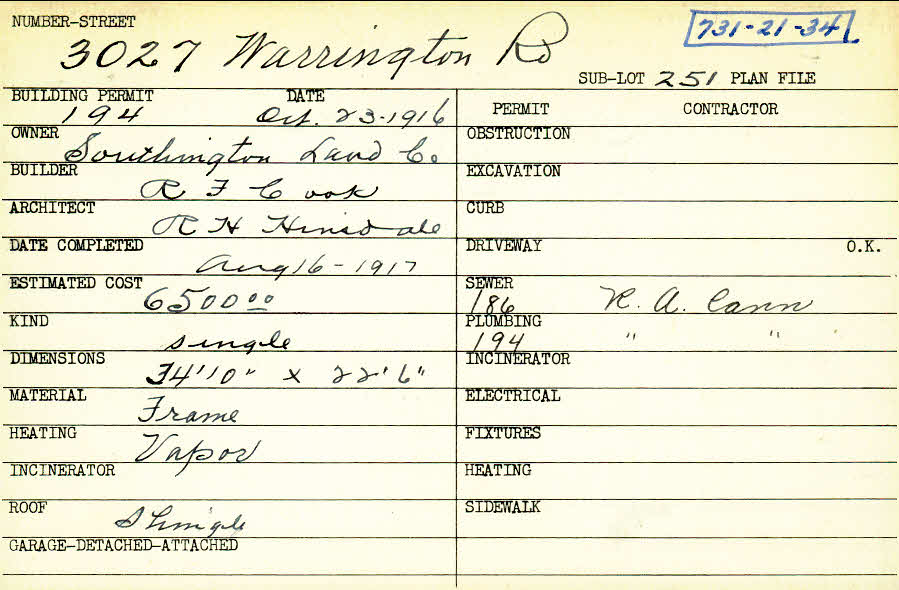 NUMBER-STREET
3027 Warrington Rd
731-21-34
SUB-LOT 251 PLAN FILE
BUILDING PERMIT DATE
194 Oct. 23-1916
OWNER
Southington Land Co.
BUILDER
R F Cook
ARCHITECT
R H Hinsdale
DATE COMPLETED
Aug 16-1917
ESTIMATED COST
6500 00
KIND
single
DIMENSIONS
34'10" x 22'6"
MATERIAL
Frame
HEATING
Vapor
INCINERATOR
ROOF
Shingle
GARAGE-DETACHED-ATTACHED
PERMIT CONTRACTOR
OBSTRUCTION
EXCAVATION
CURB
DRIVEWAY O.K.
SEWER
186 R. A. Cann
PLUMBING
194 " "
INCINERATOR
ELECTRICAL
FIXTURES
HEATING
SIDEWALK